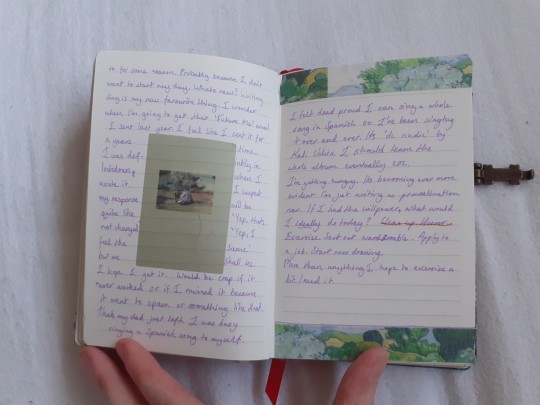 in for some reason. Probably because I don't
want to start my day. What's new? Writing
day is my new favourite thing. I wonder
when I'm going to get that 'Future Me' email
I sent last year. I feel like I sent it for
a years time.
I was def-
when I
wrote it. I suspect
my response will be
quite like "Yep, that's
not changed "Yep, I
feel the same"
but we shall see.
I hope I get it. Would be crap if it
never worked or if I missed it because
it went to spam or something like that.
That's my dad just left. I was busy
singing a Spanish song to myself.
I felt dead proud I can sing a whole
song in Spanish so I've been singing
it over and over. It's 'de nadie' by
Kali Uchis. I should learn the
whole album eventually
I'm getting hungry. It's becoming ever more
evident I'm just writing as procrastination
now. If I had the willpower, what would
I ideally do today?
Exercise. Sort out wardrobe. Apply to
a job. Start new drawing.
More than anything I hope to exercise a
bit. I need it.